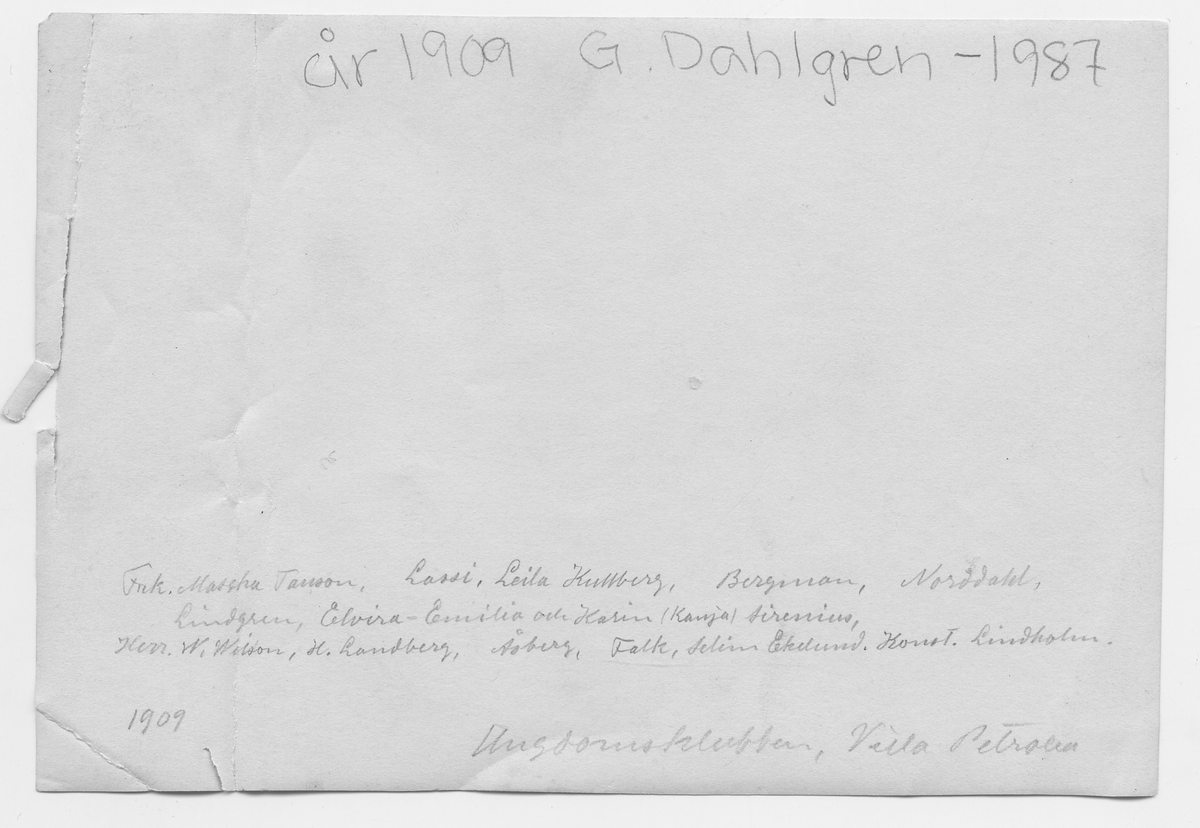 år 1909 G. Dahlgren – 1987
Frk. Mascha Tanson, Lassi, Leila Kullberg, Bergman, Norddahl,
Lindgren, Elvira-Emilia och Karin (Kanja) Sirenius,
Herr. W. Wilson, H. Landberg, Åsberg, Falk, Selim Ekelund. Konst. Lindholm.
1909
Ungdomsklubben, Villa Petrolea